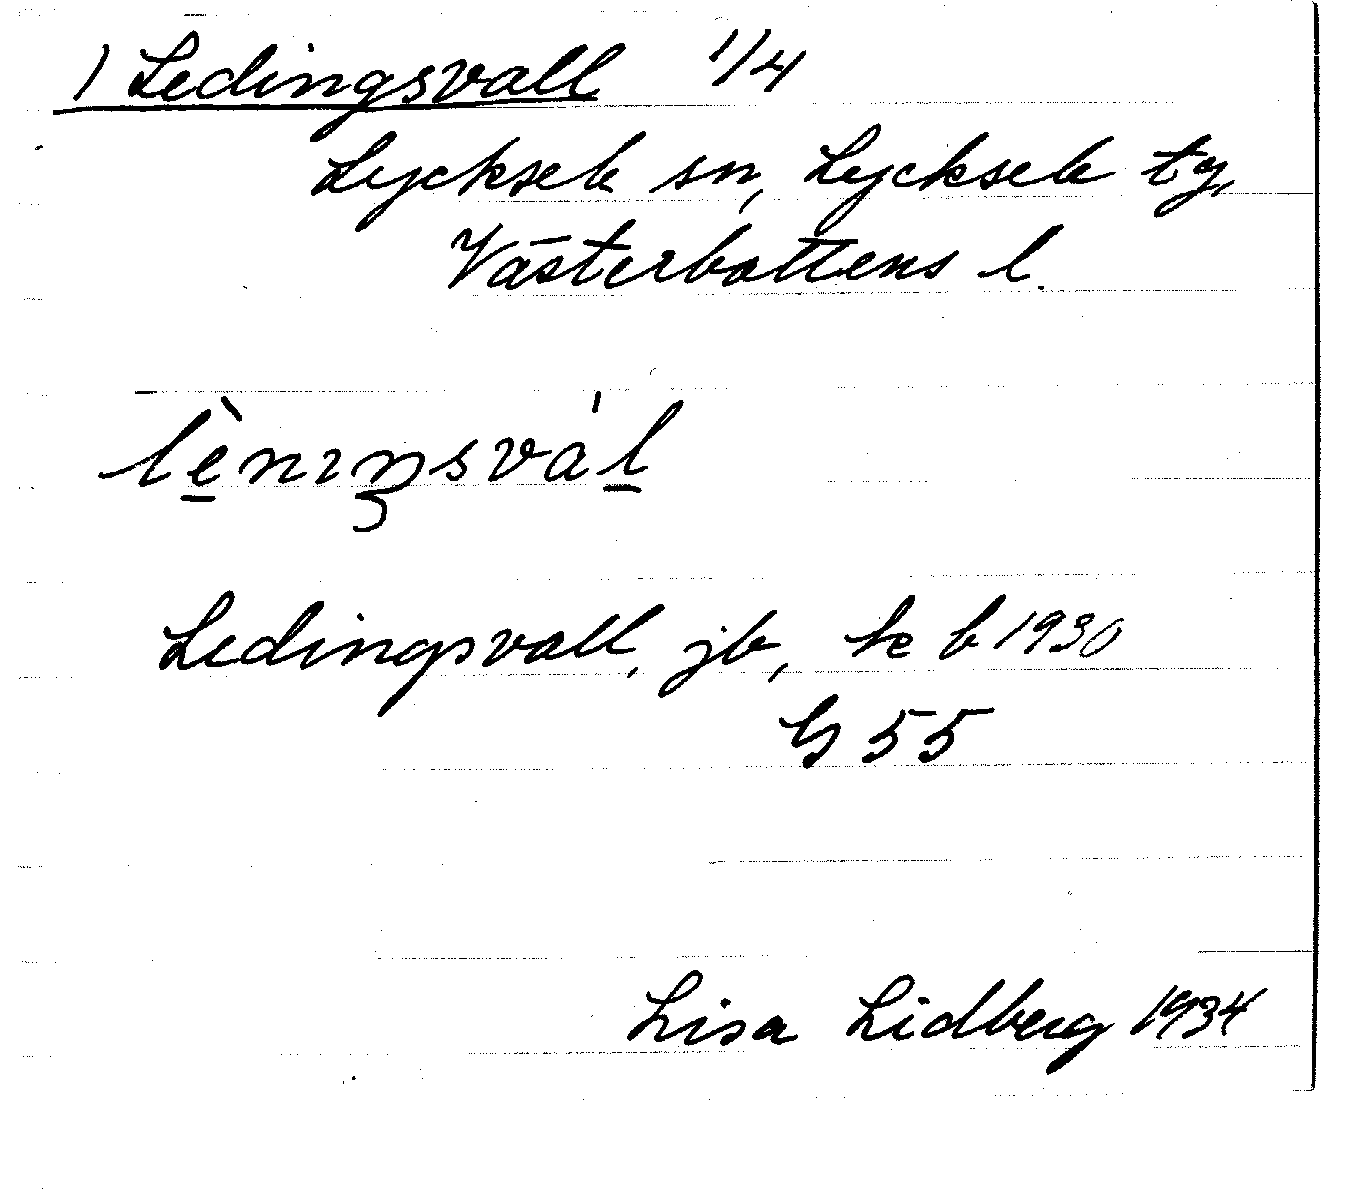 1) Ledingsvall 1/4
Lycksele sn, Lycksele tg,
Västerbottens l.
lèniŋsvál
Ledingsvall, jb,
G 55
Lisa Lidberg 1934